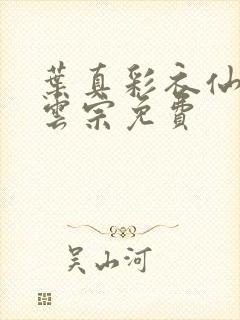 葉真彩衣仙
雲宗免費
吴山河